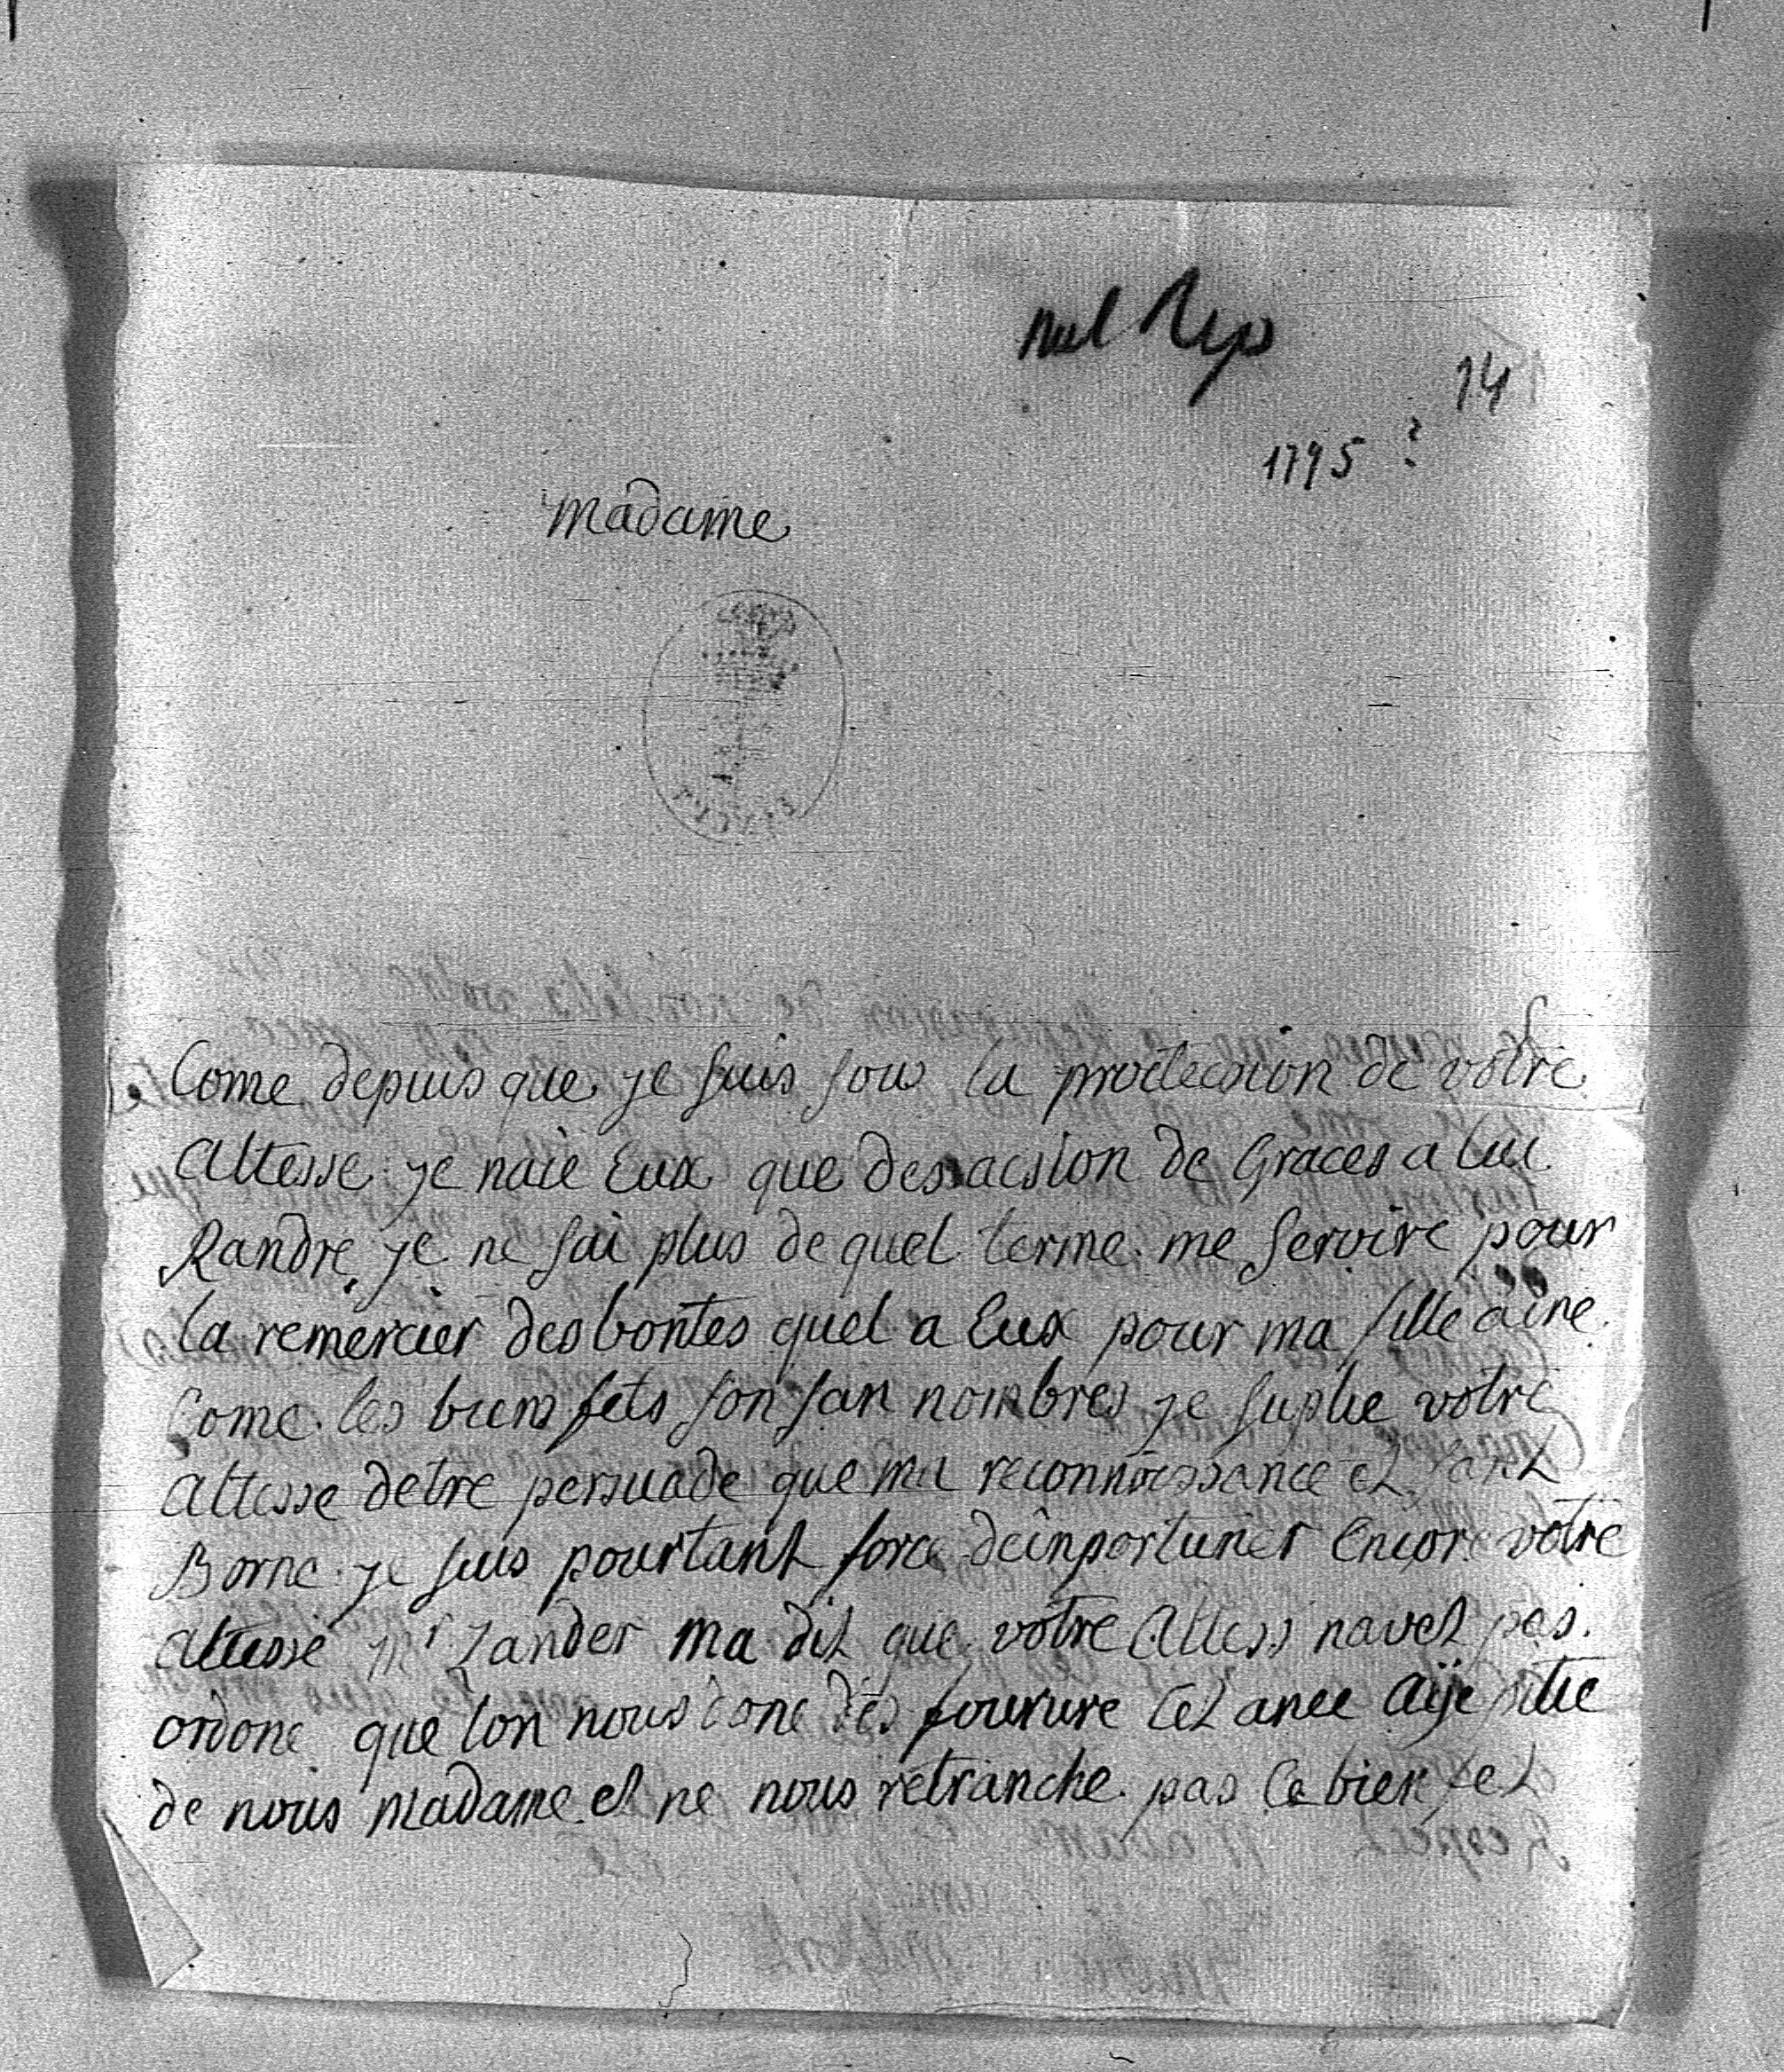 nul Rep
14
1795 ?
Madame
Come depuis que je suis sous la protecsion de votre
Altesse je naie Eux que des acsion de Graces a lui
Randre, je ne sai plus de quel terme me servire pour
la remercier des bontes quel a Eux pour ma fille aine
Come les biens fets son san nombres je suplie votre
Altesse detre persuade que ma reconnoissance et sant
Borne je suis pourtant force deinportuner Encore votre
altesse Mr Zander ma dit que votre Altess navet pas
ordone que lon nous done des fourure Cet anee aije pitie
de nous Madame et ne nous retranche pas Ce bien fet